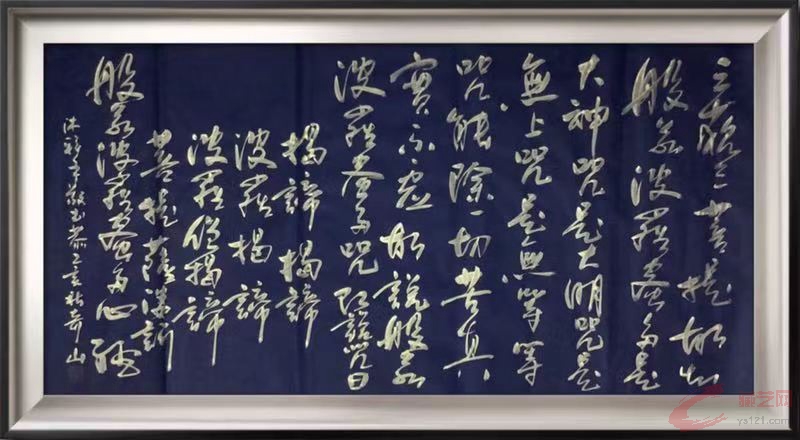 三藐三菩提故知
般若波羅蜜多是
大神咒是大明咒是
無上咒是無等等
咒能除一切苦真
實不虛故說般若
波羅蜜多咒即說咒曰
揭諦揭諦
波羅揭諦
波羅僧揭諦
菩提薩婆訶
般若波羅蜜多心經
敬書己亥秋奇山
艺网
ys121.com